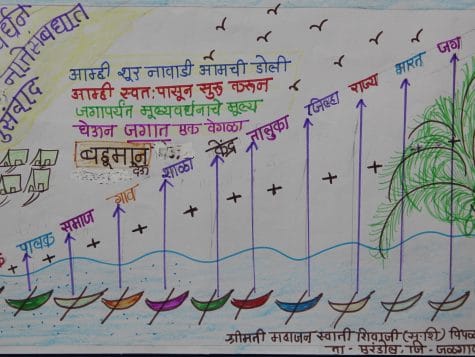 नातेसंबंधात
सुसंवाद
आम्ही शूर नावाडी आमची डोली
आम्ही स्वतःपासून सुरू करून
जगापर्यंत मूल्यवर्धनाचे मूल्य
घेऊन जगात एक वेगळा
बहुमान
पालक
समाज
गाव
शाळा
केंद्र
तालुका
जिल्हा
राज्य
भारत
जग
श्रीमती महाजन स्वाती शिवाजी (सू.शि)
ता - एरंडोल. जि-